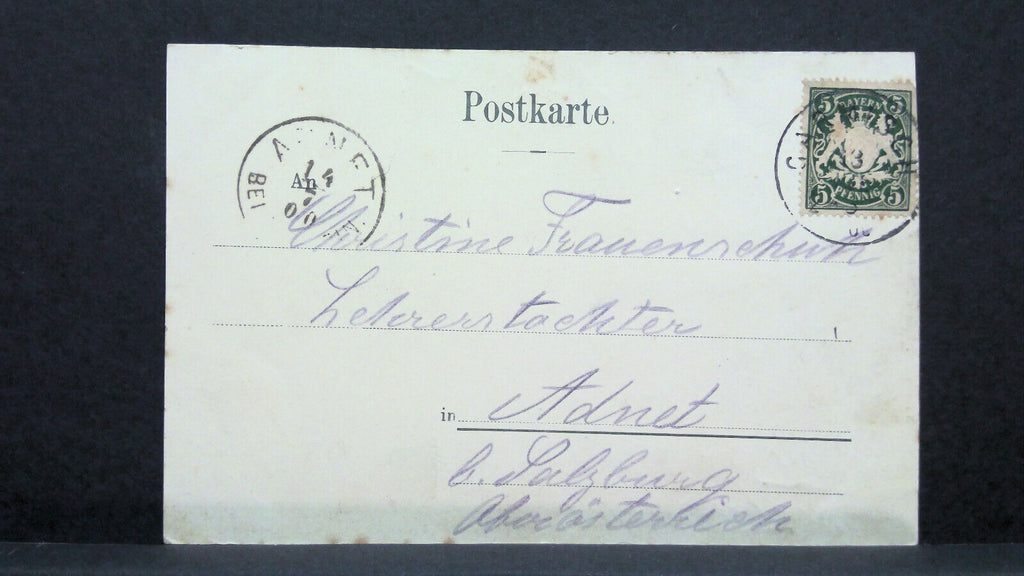 Postkarte.
5 BAYERN 5
5 PFENNIG 5
ADNET
BEI
14
00
An Christine Frauenschuh
Lehrerstochter
in Adnet
b. Salzburg
Oberösterreich